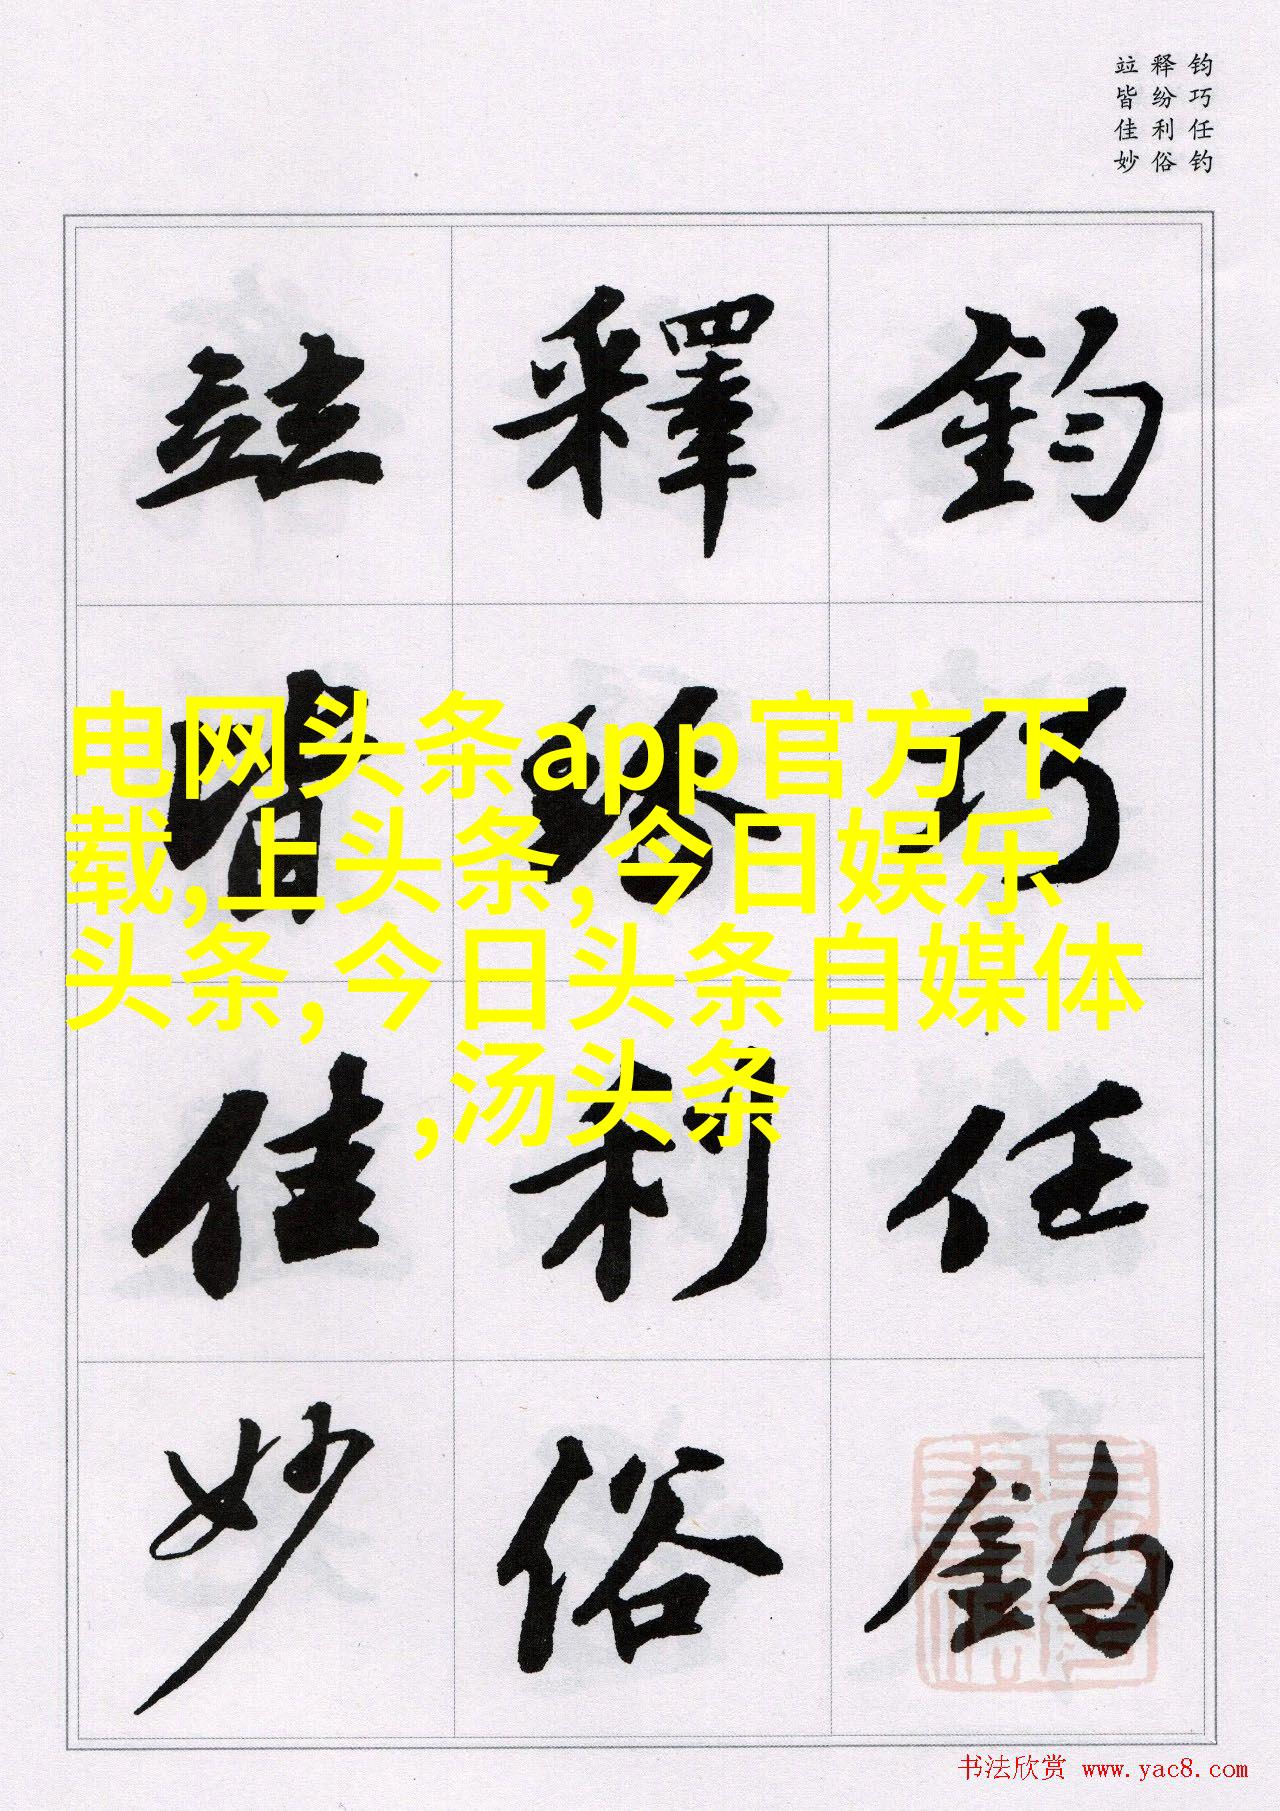 钧巧任钓
释纷利俗
竝皆佳妙
鈞巧任釣
釋紛利俗
竝皆佳妙
电网头条app官方下
载,上头条,今日娱乐
头条,今日头条自媒体
,汤头条
书法欣赏 www.yac8.com